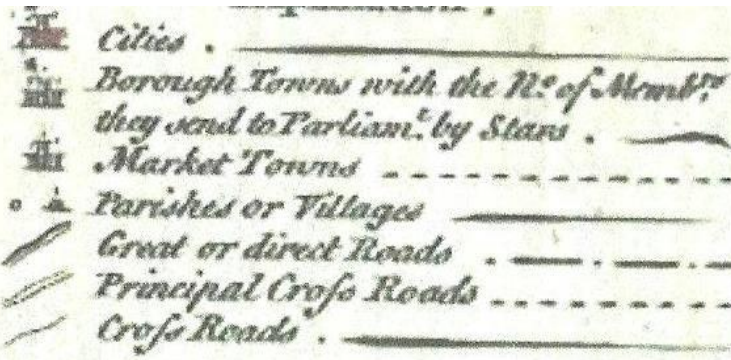 Explanation.
Cities.
Borough Towns with the No. of Membrs.
they send to Parliamt. by Stars.
Market Towns
Parishes or Villages
Great or direct Roads
Principal Croſs Roads
Croſs Roads.